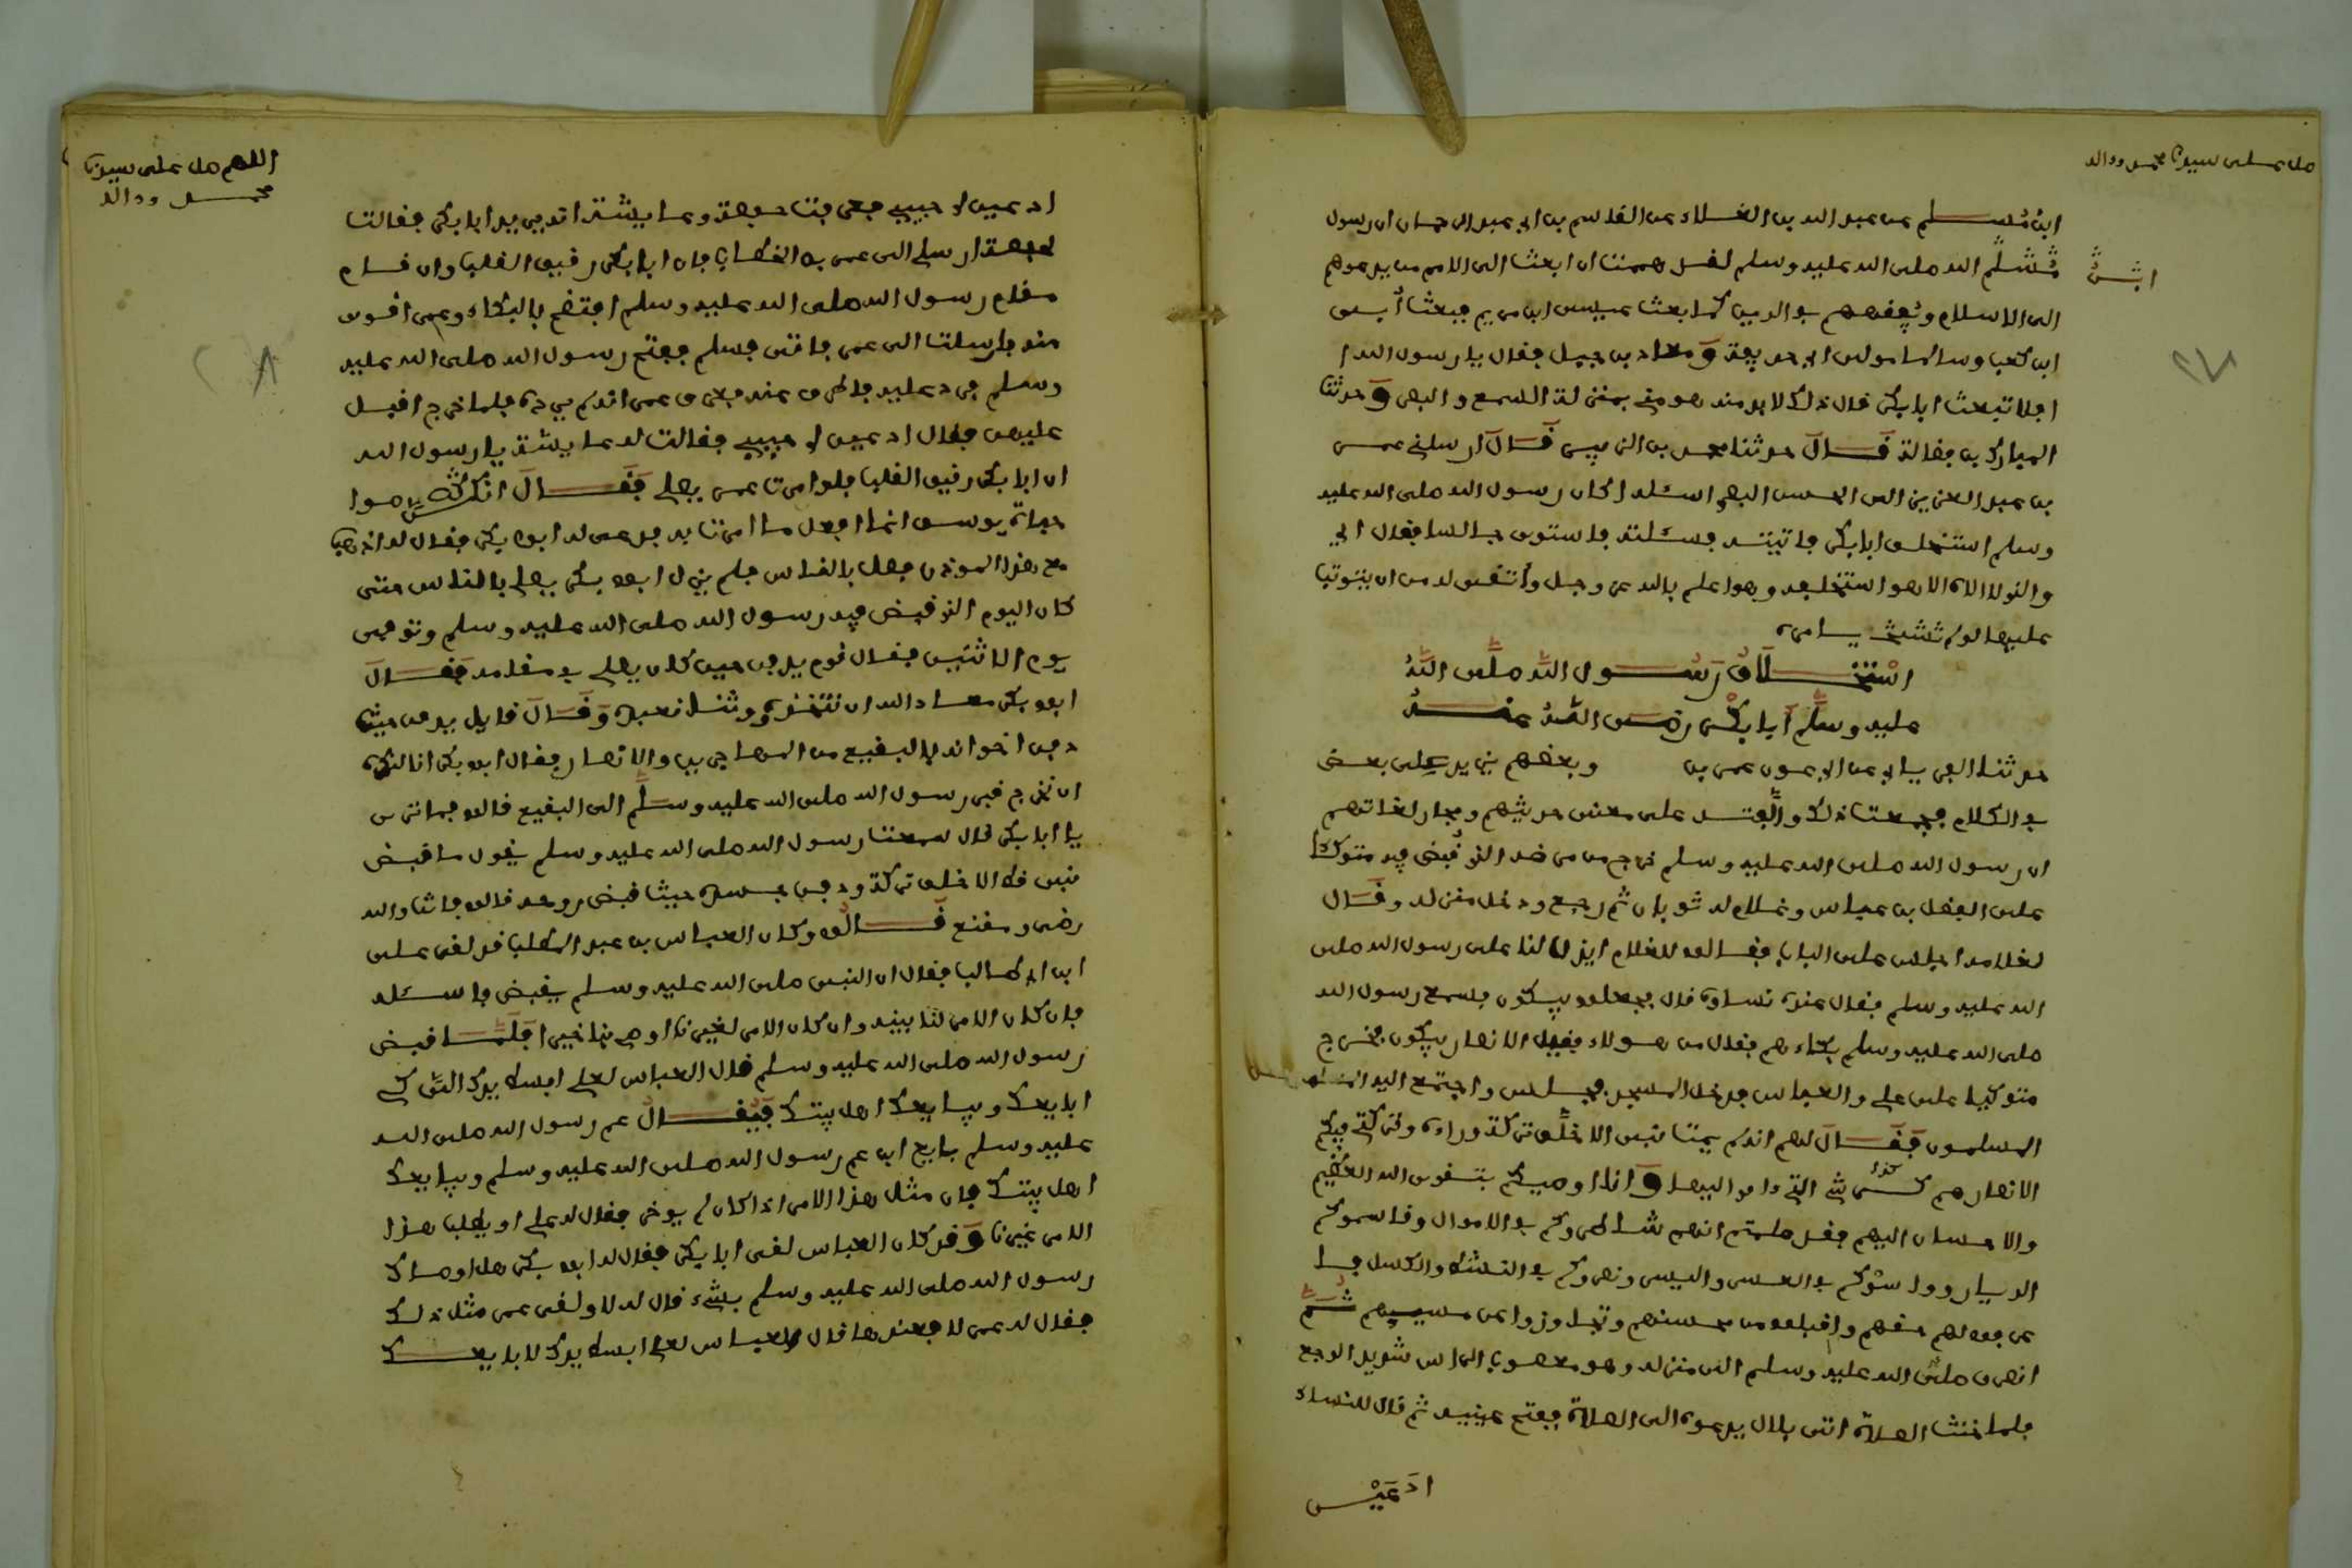 صل على سيدنا محمد وءاله
ابن مسلم عن عبد الله بن العلاء عن القاسم بن ابي عبد الرحمان ان رسول
الله صلى الله عليه وسلم لقد هممت ان ابعث الى الامم من يدعوهم
الى الاسلام ويفقههم في الدين كما بعث عيسى ابن مريم فبعث أبي
ابن كعب وسالما مولى ابي حذيفة ومعاذ بن جبل فقال يا رسول الله ا
افلا تبعث ابا بكر قال ذلك لا بد منه هو مني بمنزلة السمع والبصر وحدثنا
المبارك بن فضالة قال حدثنا محمد بن الزبير قال ارسلني عمر
بن عبد العزيز الى الحسن البصري اسئله اكان رسول الله صلى الله عليه
وسلم استخلف ابا بكر فاتيته فسئلته فاستوى جالسا فقال اي
والذي لا اله الا هو استخلفه وهو اعلم بالله عز وجل وأتقى له من ان يتوثب
عليها لو لم يامره
استخلاف رسول الله صلى الله
عليه وسلم أبا بكر رضي الله عنه
حدثنا ابي عن ابي عون عمر بن وبعضهم يزيد على بعض
في الكلام فجمعت ذلك والفته على معنى حديثهم ومجاز لغاتهم
ان رسول الله صلى الله عليه وسلم خرج من مرضه الذي قبض فيه متوكئا
على الفضل بن عباس وغلام له ثوبان ثم رجع ودخل منزله وقال
لغلامه اجلس على الباب فقالوا للغلام ايذن لنا على رسول الله صلى
الله عليه وسلم فقال عنده نساؤه قال فجعلوا يبكون فسمع رسول الله
صلى الله عليه وسلم بكاءهم فقال من هولاء فقيل الانصار يبكون فخرج
متوكيا على علي والعباس فدخل المسجد فجلس واجتمع اليه
المسلمون فقال لهم انه لم يمت نبي الا خلف تركة وراءه وتركتي فيكم
الانصار هم كرشي التي ءاوي اليها وانا اوصيكم بتقوى الله العظيم
والاحسان اليهم فقد علمتم انهم شاطروكم في الاموال وقاسموكم
الديار وواسوكم في العسر واليسر ونصروكم في النشط والكسل فا
عرفوا لهم حقهم واقبلوا من محسنهم وتجاوزوا عن مسييهم ثم
انصرف صلى الله عليه وسلم الى منزله وهو معصوب الراس شديد الوجع
فلما حانت الصلاة اتى بلال يدعوه الى الصلاة ففتح عينيه ثم قال للنساء
ادعين
اللهم صل على سيدنا
محمد وءاله
ادعين لي حبيبي فعرفت حفصة وعايشة انه يريد ابا بكر فقالت
حفصة ارسلي الى عمر بن الخطاب فان ابا بكر رقيق القلب وان قام
مقام رسول الله صلى الله عليه وسلم افتضح بالبكاء وعمر اقوى
منه فارسلت الى عمر فاتى فسلم ففتح رسول الله صلى الله عليه
وسلم فرد عليه فاطرق عنه فعرف عمر انه لم يرده فلما خرج اقبل
عليهن فقال ادعين لي حبيبي فقالت له عايشة يا رسول الله
ان ابا بكر رقيق القلب فلو امرت عمر يصلي فقال
يوسف انما افعل ما امرت به فدعي له ابو بكر فقال له اذهب
مع هذا الموذن فصل بالناس فلم يزل ابو بكر يصلي بالناس حتى
كان اليوم الذي قبض فيه رسول الله صلى الله عليه وسلم وتوفي
يوم الاثنين فقال قوم يدفن حيث كان يصلي في مقامه فقال
ابو بكر معاذ الله ان نتخذه وثنا نعبده وقال قايل يدفن حيث
دفن اخوانه في البقيع من المهاجرين والانصار فقال ابو بكر انا لنكره
ان نخرج قبر رسول الله صلى الله عليه وسلم الى البقيع قالوا فما ترى
يا ابا بكر قال سمعت رسول الله صلى الله عليه وسلم يقول ما قبض
نبي قط الا خلف تركة ودفن جسده حيث قبض روحه قالوا فانت والله
رضى ومقنع قالوا وكان العباس بن عبد المطلب قد لقي علي
ابن ابي طالب فقال ان النبي صلى الله عليه وسلم يقبض فاسئله
فان كان الامر لنا بينه وان كان الامر لغيرنا اوصى بنا خيرا فلما قبض
رسول الله صلى الله عليه وسلم قال العباس لعلي ابسط يدك التي كي
ابايعك ويبايعك اهل بيتك فيقال عم رسول الله صلى الله
عليه وسلم بايع ابن عم رسول الله صلى الله عليه وسلم ويبايعك
اهل بيتك فان مثل هذا الامر اذا كان لم يوخر فقال له علي او يطلب هذا
الامر غيرنا وقد كان العباس لقي ابا بكر فقال له ابو بكر هل اوصاك
رسول الله صلى الله عليه وسلم بشيء قال له لا ولقي عمر مثل ذلك
فقال له عمر لا فعندها قال العباس لعلي ابسط يدك لابايعك